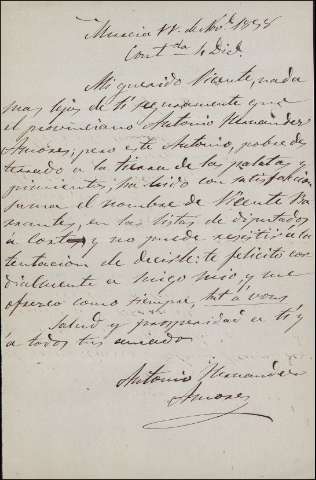 Murcia 11 de Nov.e 1898
Cont.da 4 Dic.e
Mi querido Vicente, nada
mas lejos de ti seguramente que
el provinciano Antonio Hernandez
Amores; pero este Antonio, pobre des
terrado a la tierra de las patatas y
pimientos, ha leido con satisfaccion
suma el nombre de Vicente Ba
rrantes, en las listas de diputados
a Cortes y no puede resistir a la
tentacion de decirle: te felicito cor
dialmente amigo mio y me
ofrezco como siempre, tut á vous
Salud y prosperidad a ti y
á todos tus
Antonio Hernandez
Amores